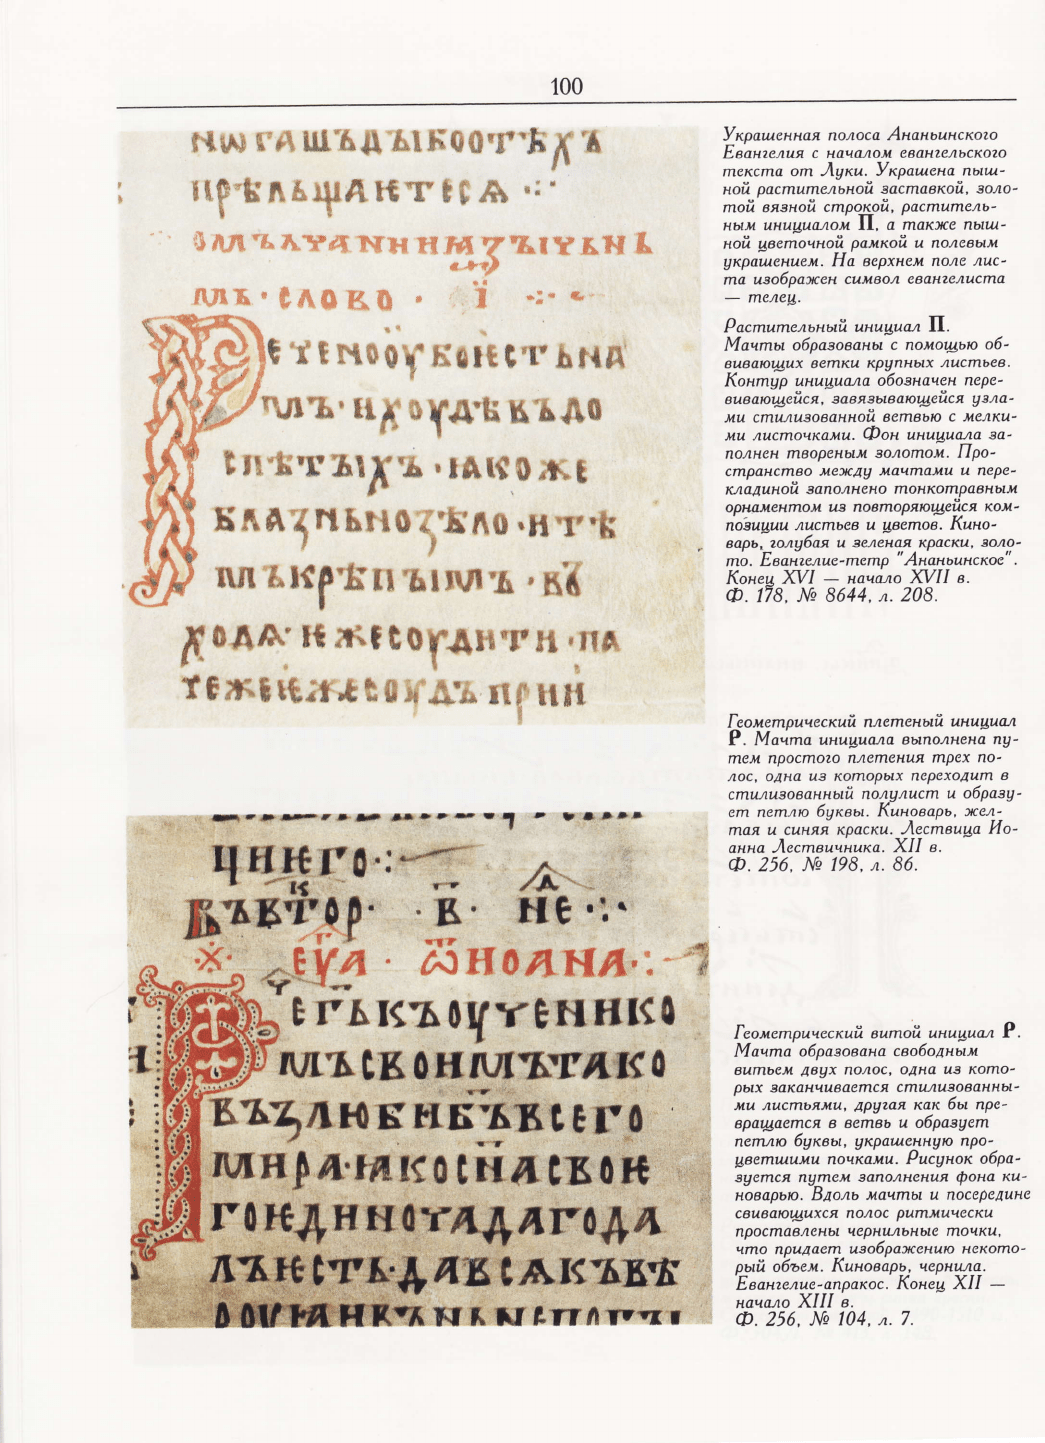 100
нѡгашьдꙑкоотъхъ
прѣльщаѥтесѧ ·:·
мъ · слово · ї ·:· ~
етемооубоѥстьна
мъ·нхоудѣѥъдо
спѣтꙑхъ·ꙗкоже
блаꙁньноꙁѣло·нтѣ
мъкрѣпꙑмъ·въ
ходѧ·ѥжесоудитн·па
тежеѥжесоудъпрни
цнѥго·:·
въвтор· ·в· не·:·
еуа · ѿноана·:·
егъкъоученнко
мъсвонмътако
въꙁлюбнбъвсего
мнра·ꙗкоснасвоѥ
гоѥднночадагода
лъѥсть·давсѧкъвѣ
Украшенная полоса Ананьинского
Евангелия с началом евангельского
текста от Луки. Украшена пыш-
ной растительной заставкой, золо-
той вязной строкой, раститель-
ным инициалом П, а также пыш-
ной цветочной рамкой и полевым
украшением. На верхнем поле лис-
та изображен символ евангелиста
— телец.
Растительный инициал П.
Мачты образованы с помощью об-
вивающих ветки крупных листьев.
Контур инициала обозначен пере-
вивающейся, завязывающейся узла-
ми стилизованной ветвью с мелки-
ми листочками. Фон инициала за-
полнен твореным золотом. Про-
странство между мачтами и пере-
кладиной заполнено тонкотравным
орнаментом из повторяющейся ком-
позиции листьев и цветов. Кино-
варь, голубая и зеленая краски, золо-
то. Евангелие-тетр "Ананьинское".
Конец XVI — начало XVII в.
Ф. 178, № 8644, л. 208.
Геометрический плетеный инициал
Р. Мачта инициала выполнена пу-
тем простого плетения трех по-
лос, одна из которых переходит в
стилизованный полулист и образу-
ет петлю буквы. Киноварь, жел-
тая и синяя краски. Лествица Ио-
анна Лествичника. XII в.
Ф. 256, № 198, л. 86.
Геометрический витой инициал Р.
Мачта образована свободным
витьем двух полос, одна из кото-
рых заканчивается стилизованны-
ми листьями, другая как бы пре-
вращается в ветвь и образует
петлю буквы, украшенную про-
цветшими почками. Рисунок обра-
зуется путем заполнения фона ки-
новарью. Вдоль мачты и посередине
свивающихся полос ритмически
проставлены чернильные точки,
что придает изображению некото-
рый объем. Киноварь, чернила.
Евангелие-апракос. Конец XII —
начало XIII в.
Ф. 256, № 104, л. 7.